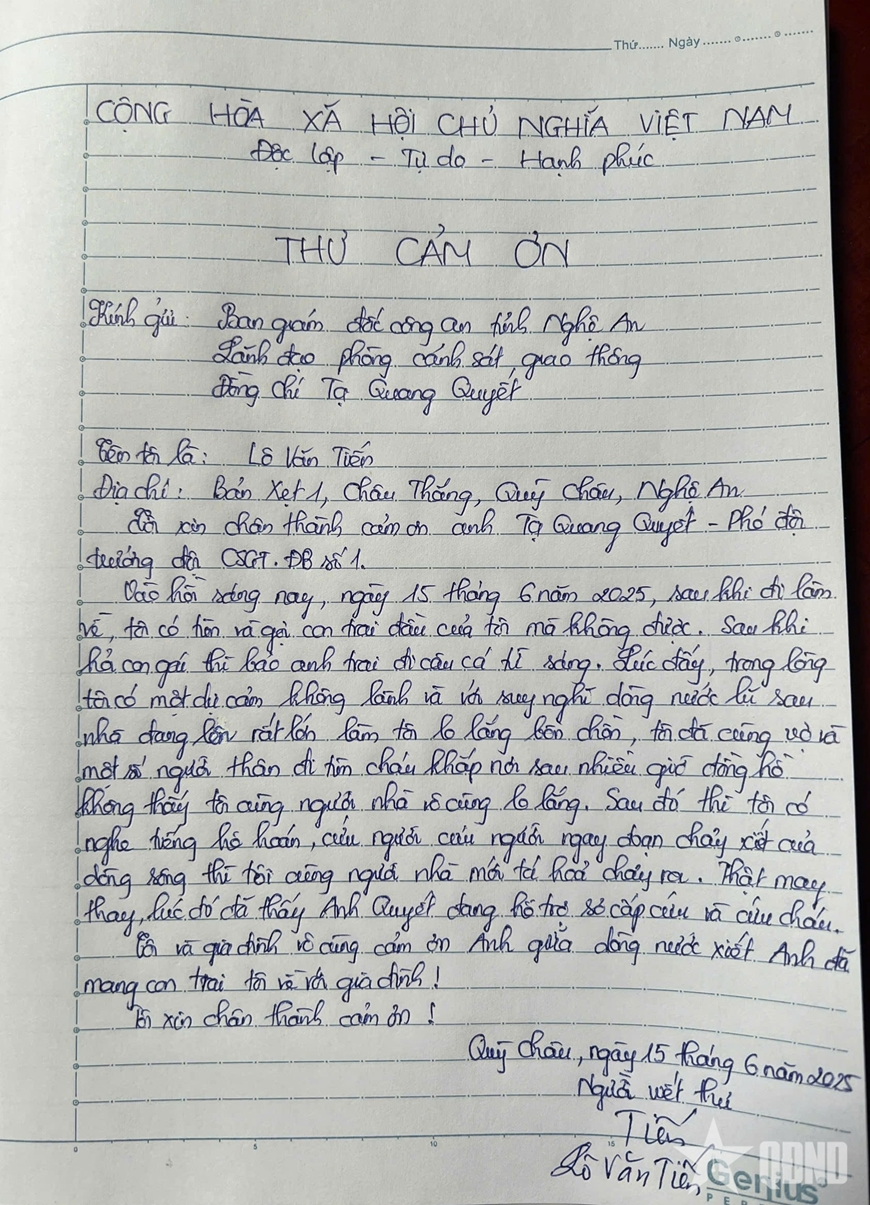 Thứ....... Ngày ....... o ....... o .......
CỘNG HÒA XÃ HỘI CHỦ NGHĨA VIỆT NAM
Độc lập - Tự do - Hạnh phúc
THƯ CẢM ƠN
Kính gửi: Ban giám đốc công an tỉnh Nghệ An
Lãnh đạo phòng cảnh sát giao thông
Đồng chí Tạ Quang Quyết
Tên tôi là: Lô Văn Tiến
Địa chỉ: Bản Xẹt 1, Châu Thắng, Quỳ Châu, Nghệ An
Tôi xin chân thành cảm ơn anh Tạ Quang Quyết - Phó đội
trưởng đội CSGT. ĐB số 1.
Vào hồi sáng nay, ngày 15 tháng 6 năm 2025, sau khi đi làm
về, tôi có tìm và gọi con trai đầu của tôi mà không được. Sau khi
hỏi con gái thì bảo anh trai đi câu cá từ sáng. Lúc đấy, trong lòng
tôi có một dự cảm không lành và với suy nghĩ dòng nước lũ sau
nhà đang lên rất lớn làm tôi lo lắng bồn chồn, tôi đã cùng vợ và
một số người thân đi tìm cháu khắp nơi sau nhiều giờ đồng hồ
không thấy tôi cùng người nhà vô cùng lo lắng. Sau đó thì tôi có
nghe tiếng hô hoán, cứu người cứu người ngay đoạn chảy xiết của
dòng sông thì tôi cùng người nhà mới tá hoả chạy ra. Thật may
thay, lúc đó đã thấy Anh Quyết đang hỗ trợ sơ cấp cứu và cứu cháu.
Tôi và gia đình vô cùng cảm ơn Anh giữa dòng nước xiết Anh đã
mang con trai tôi về với gia đình!
Tôi xin chân thành cảm ơn!
Quỳ Châu, ngày 15 tháng 6 năm 2025
Người viết thư
Tiến
Lô Văn Tiến
0 5 10 15
QĐND
Genius